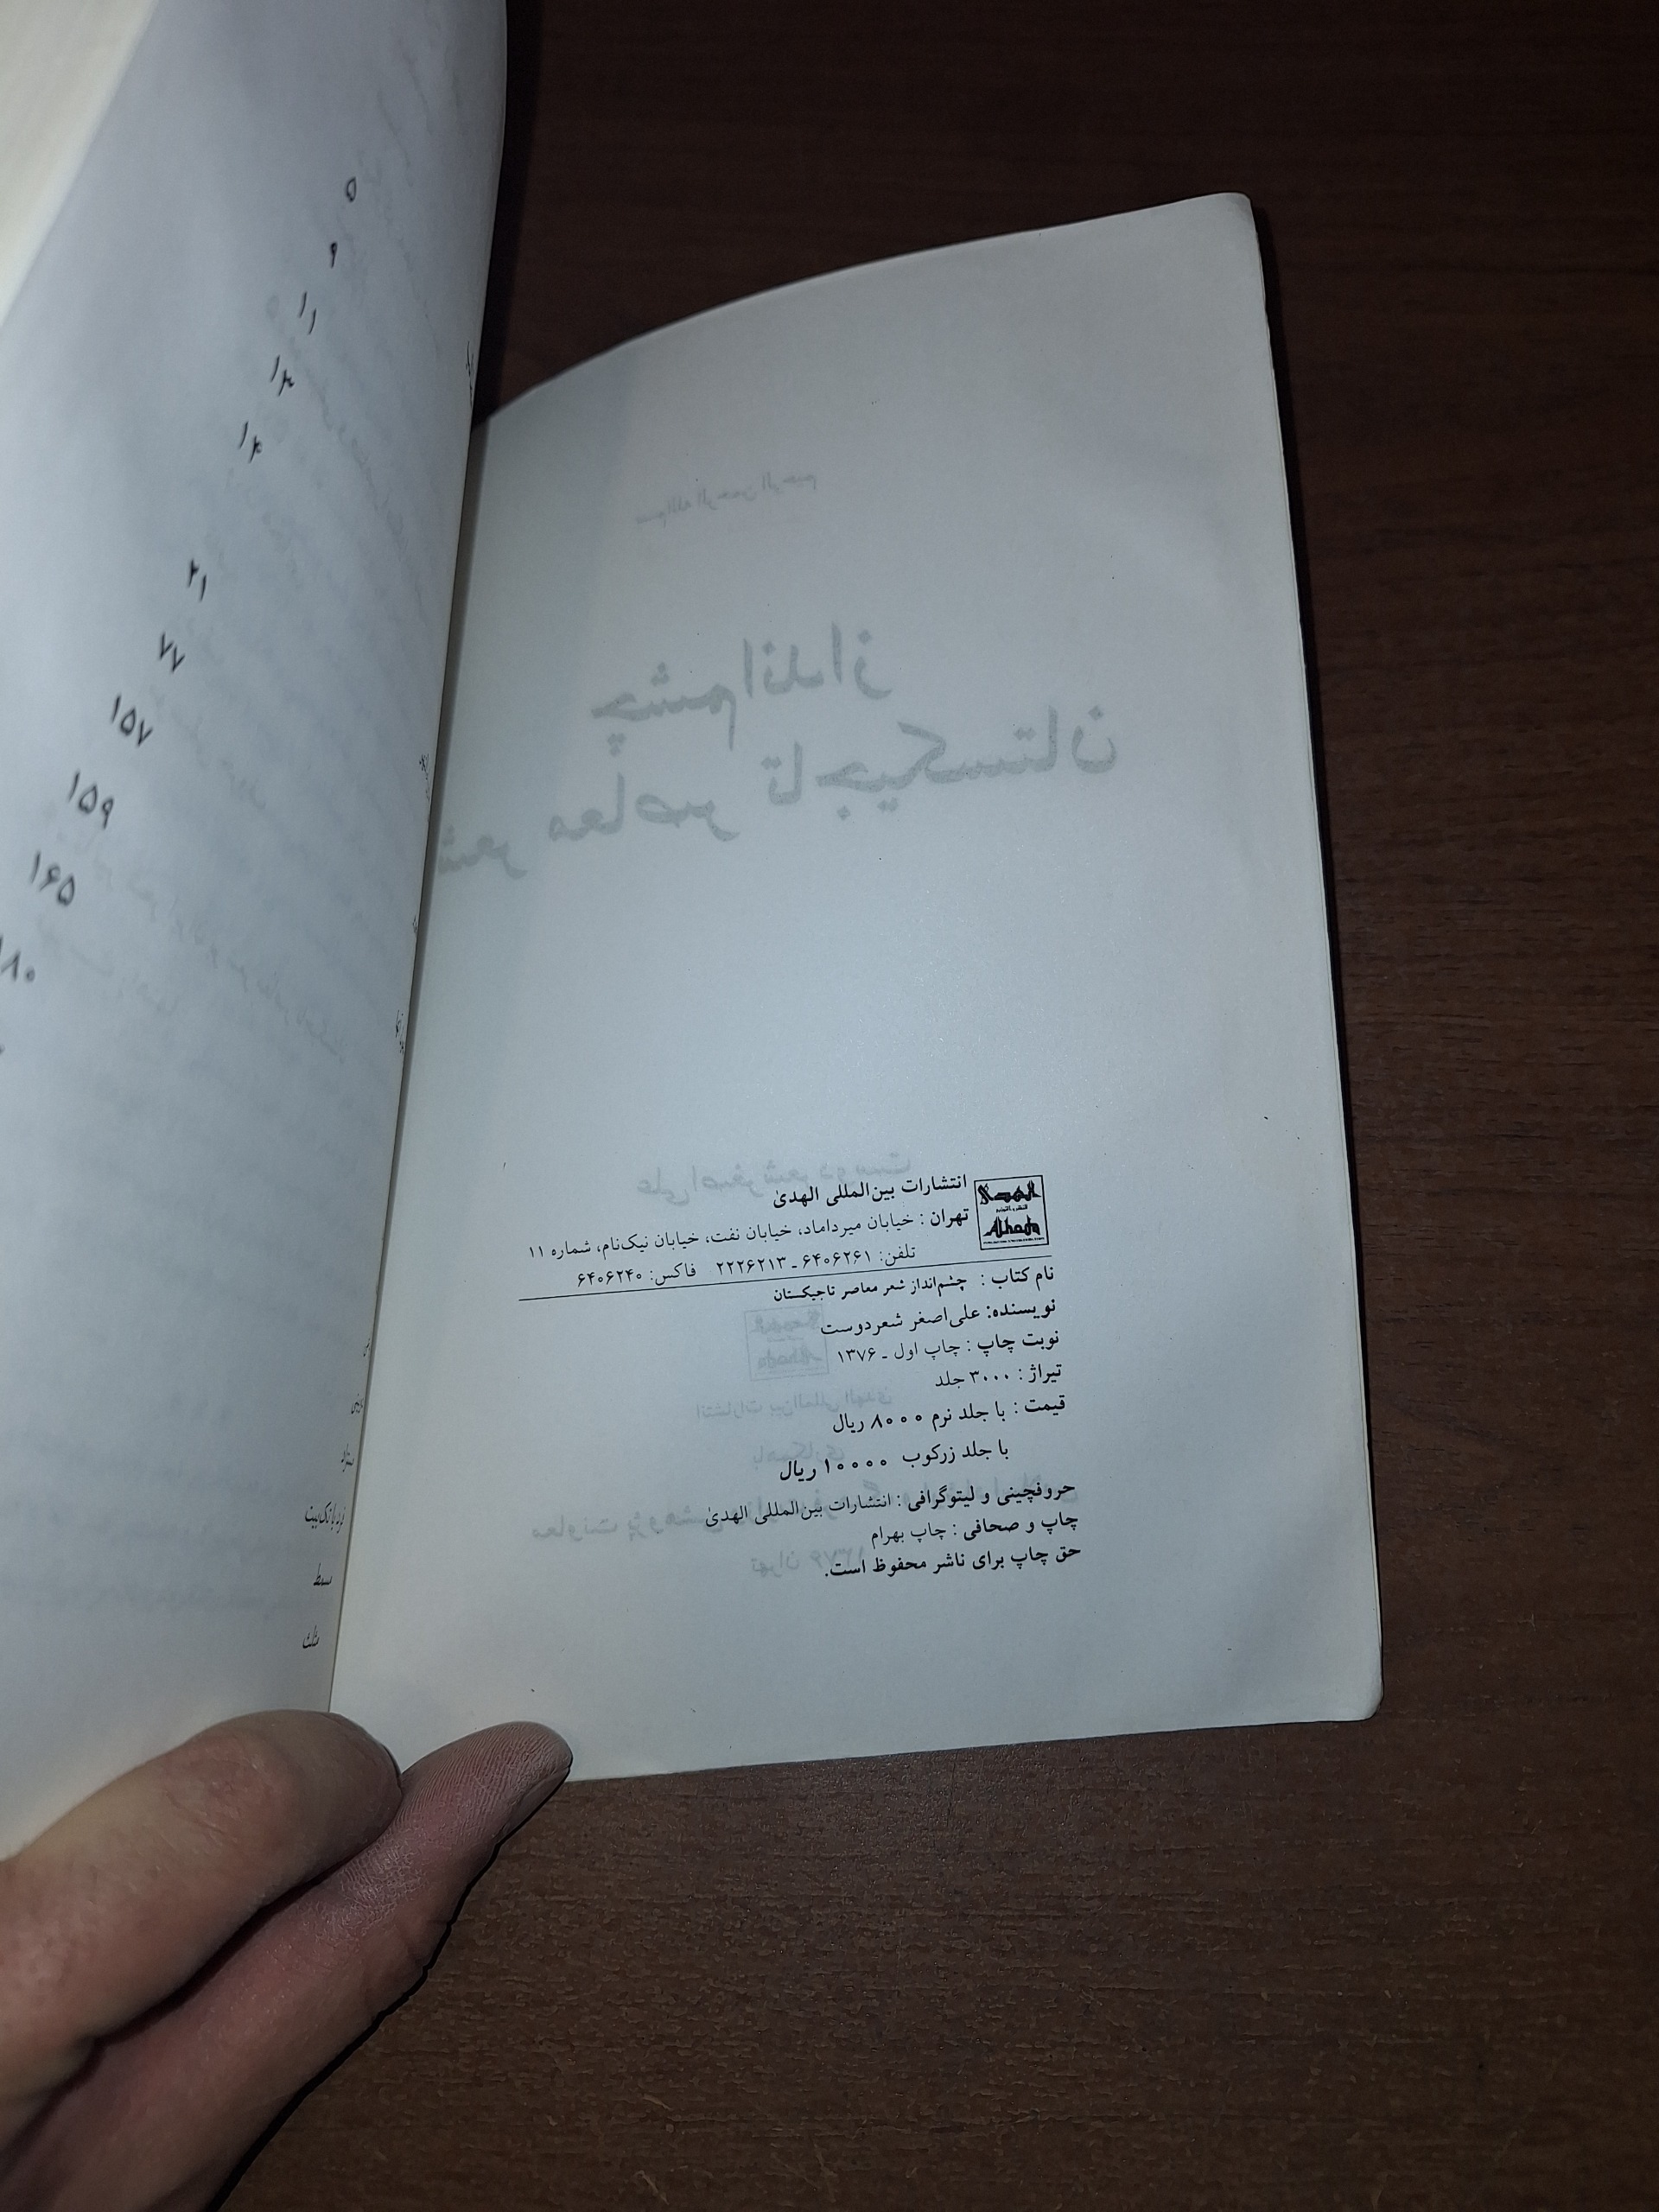 انتشارات بین‌المللی الهدیٰ
تهران : خیابان میرداماد، خیابان نفت، خیابان نیک‌نام، شماره ۱۱
تلفن: ۶۴۰۶۲۶۱ ـ ۲۲۲۶۲۱۳ فاکس: ۶۴۰۶۲۴۰
الهدی
Alhoda
نام کتاب : چشم‌انداز شعر معاصر تاجیکستان
نویسنده: علی‌اصغر شعردوست
نوبت چاپ : چاپ اول ـ ۱۳۷۶
تیراژ : ۳۰۰۰ جلد
قیمت : با جلد نرم ۸۰۰۰ ریال
با جلد زرکوب ۱۰۰۰۰ ریال
حروفچینی و لیتوگرافی : انتشارات بین‌المللی الهدیٰ
چاپ و صحافی : چاپ بهرام
حق چاپ برای ناشر محفوظ است.
چشم‌انداز
شعر معاصر تاجیکستان
علی‌اصغر شعردوست
انتشارات بین‌المللی الهدی
۵
۹
۱۱
۱۳
۱۴
۲۱
۷۷
۱۵۷
۱۵۹
۱۶۵